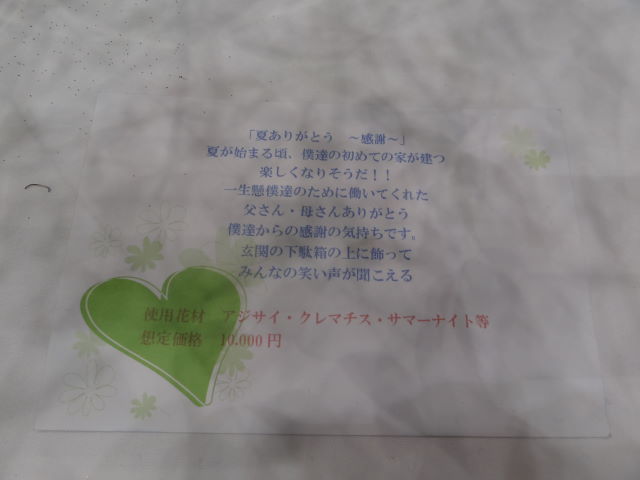 「夏ありがとう　～感謝～」
夏が始まる頃、僕達の初めての家が建つ
楽しくなりそうだ！！
一生懸僕達のために働いてくれた
父さん・母さんありがとう
僕達からの感謝の気持ちです。
玄関の下駄箱の上に飾って
みんなの笑い声が聞こえる
使用花材　アジサイ・クレマチス・サマーナイト等
想定価格　10.000 円